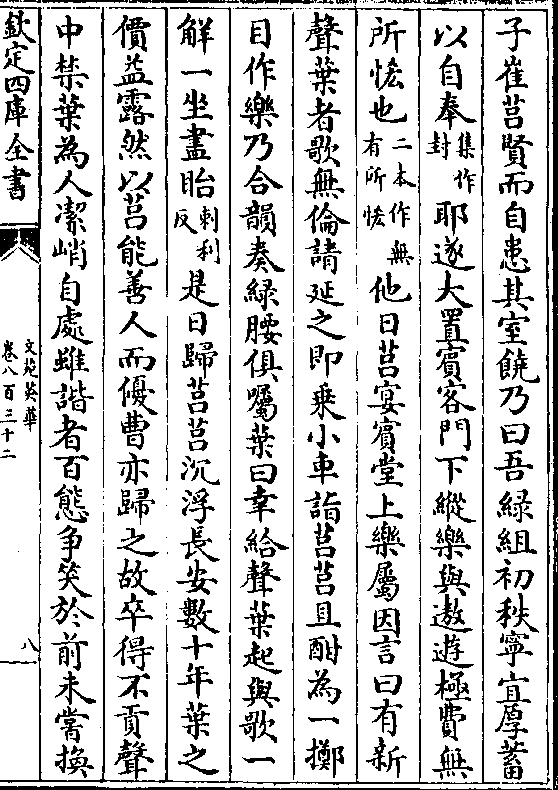 子崔莒賢而自患其室饒乃曰吾緑組初秩寧宜厚蓄
以自奉集作封耶遂大置賓客門下縱樂與遨遊極費無
所恡也二本作無有所恡他日莒宴賓堂上樂屬因言曰有新
聲葉者歌無倫請延之即乗小車詣莒莒且酣為一擲
目作樂乃合韻奏緑腰俱囑葉曰幸給聲葉起與歌一
解一坐盡眙刺利反是日歸莒莒沉浮長安數十年葉之
價益露然以莒能善人而優曹亦歸之故卒得不貢聲
中禁葉為人潔峭自處雖諧者百態争笑於前未嘗換
欽定四庫全書
文苑英華
卷八百三十二
八